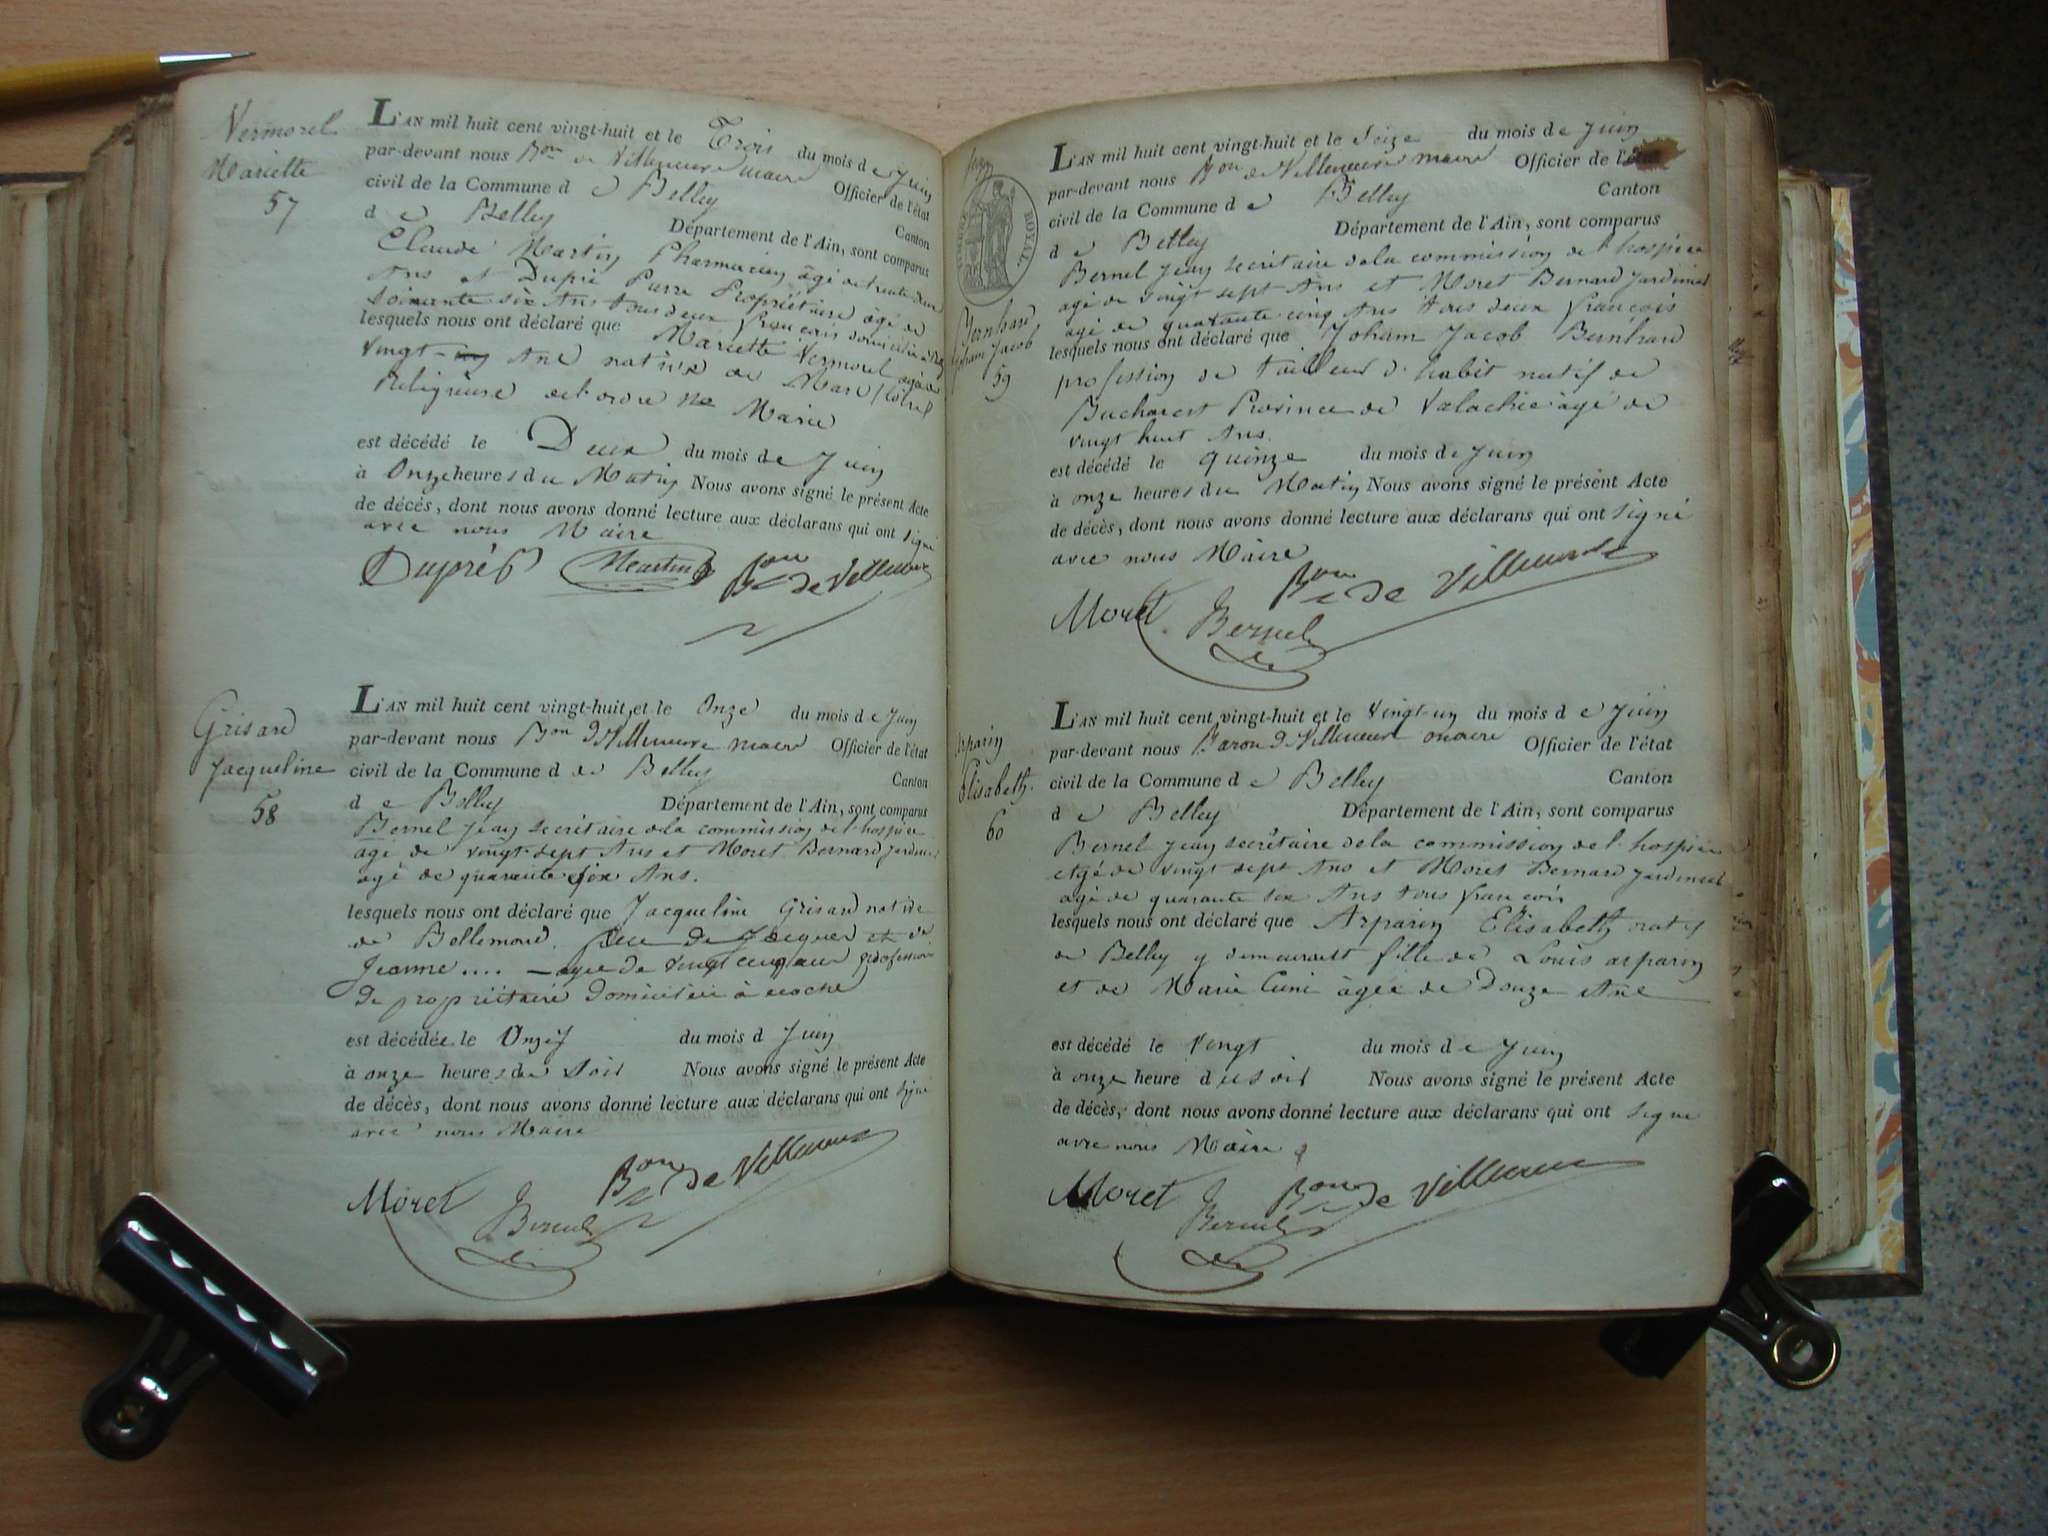 Vermorel
Mariette
57
L'AN mil huit cent vingt-huit et le Trois du mois de Juin
par-devant nous Bon de Villeneuve maire Officier de l'état
civil de la Commune de Belley Canton
de Belley Département de l'Ain, sont comparus
Claude Martin Pharmacien âgé de trente deux
Ans et Dupré Pierre Propriétaire âgé de
Soixante six Ans tous deux français domiciliés à
lesquels nous ont déclaré que Mariette Vermorel agée de
vingt Ans native de
Religieuse de l'ordre Marie
est décédé le Deux du mois de Juin
à Onze heures du Matin Nous avons signé le présent Acte
de décès, dont nous avons donné lecture aux déclarans qui ont signé
avec nous Maire
Dupré Martin Bon de Villeneuve
Grisard
Jacqueline
58
L'AN mil huit cent vingt-huit et le Onze du mois de Juin
par-devant nous Bon d Villeneuve maire Officier de l'état
civil de la Commune de Belley Canton
de Belley Département de l'Ain, sont comparus
Bernel Jean secrétaire de la commission de l'hospice
agé de vingt-sept Ans et Moret Bernard Jardinier
agé de quarante six Ans.
lesquels nous ont déclaré que Jacqueline Grisard native
de Bellemond. de Jacques et de
Jeanne.... - agée de vingt cinq ans profession
de propriétaire domiciliée à
est décédée le Onze du mois d Juin
à onze heures du Soir Nous avons signé le présent Acte
de décès, dont nous avons donné lecture aux déclarans qui ont signé
avec nous Maire
Moret Bernel Bon de Villeneuve
TIMBRE ROYAL
Bernhard
Joham Jacob
59
L'AN mil huit cent vingt-huit et le Seize du mois de Juin
par-devant nous Bon de Villeneuve maire Officier de l'état
civil de la Commune de Belley Canton
de Belley Département de l'Ain, sont comparus
Bernel Jean secrétaire de la commission de l'hospice
agé de vingt sept Ans et Moret Bernard Jardinier
agé de quarante cinq Ans tous deux français
lesquels nous ont déclaré que Joham Jacob Bernhard
profession de tailleur d'habit natif de
Bucharest Province de Valachie agé de
vingt huit Ans.
est décédé le quinze du mois de Juin
à onze heures du Matin Nous avons signé le présent Acte
de décès, dont nous avons donné lecture aux déclarans qui ont signé
avec nous Maire
Moret Bernel Bon de Villeneuve
Arparin
Elisabeth.
60
L'AN mil huit cent vingt-huit et le Vingt-un du mois de Juin
par-devant nous Baron d Villeneuve maire Officier de l'état
civil de la Commune de Belley Canton
de Belley Département de l'Ain, sont comparus
Bernel Jean secrétaire de la commission de l'hospice
agé de vingt sept Ans et Moret Bernard Jardinier
agé de quarante six Ans tous français
lesquels nous ont déclaré que Arparin Elisabeth natif
de Belley y demeurant fille de Louis arparin
et de Marie agée de Douze Ans
est décédé le Vingt du mois de Juin
à onze heure du soir Nous avons signé le présent Acte
de décès, dont nous avons donné lecture aux déclarans qui ont signé
avec nous Maire
Moret Bernel Bon de Villeneuve